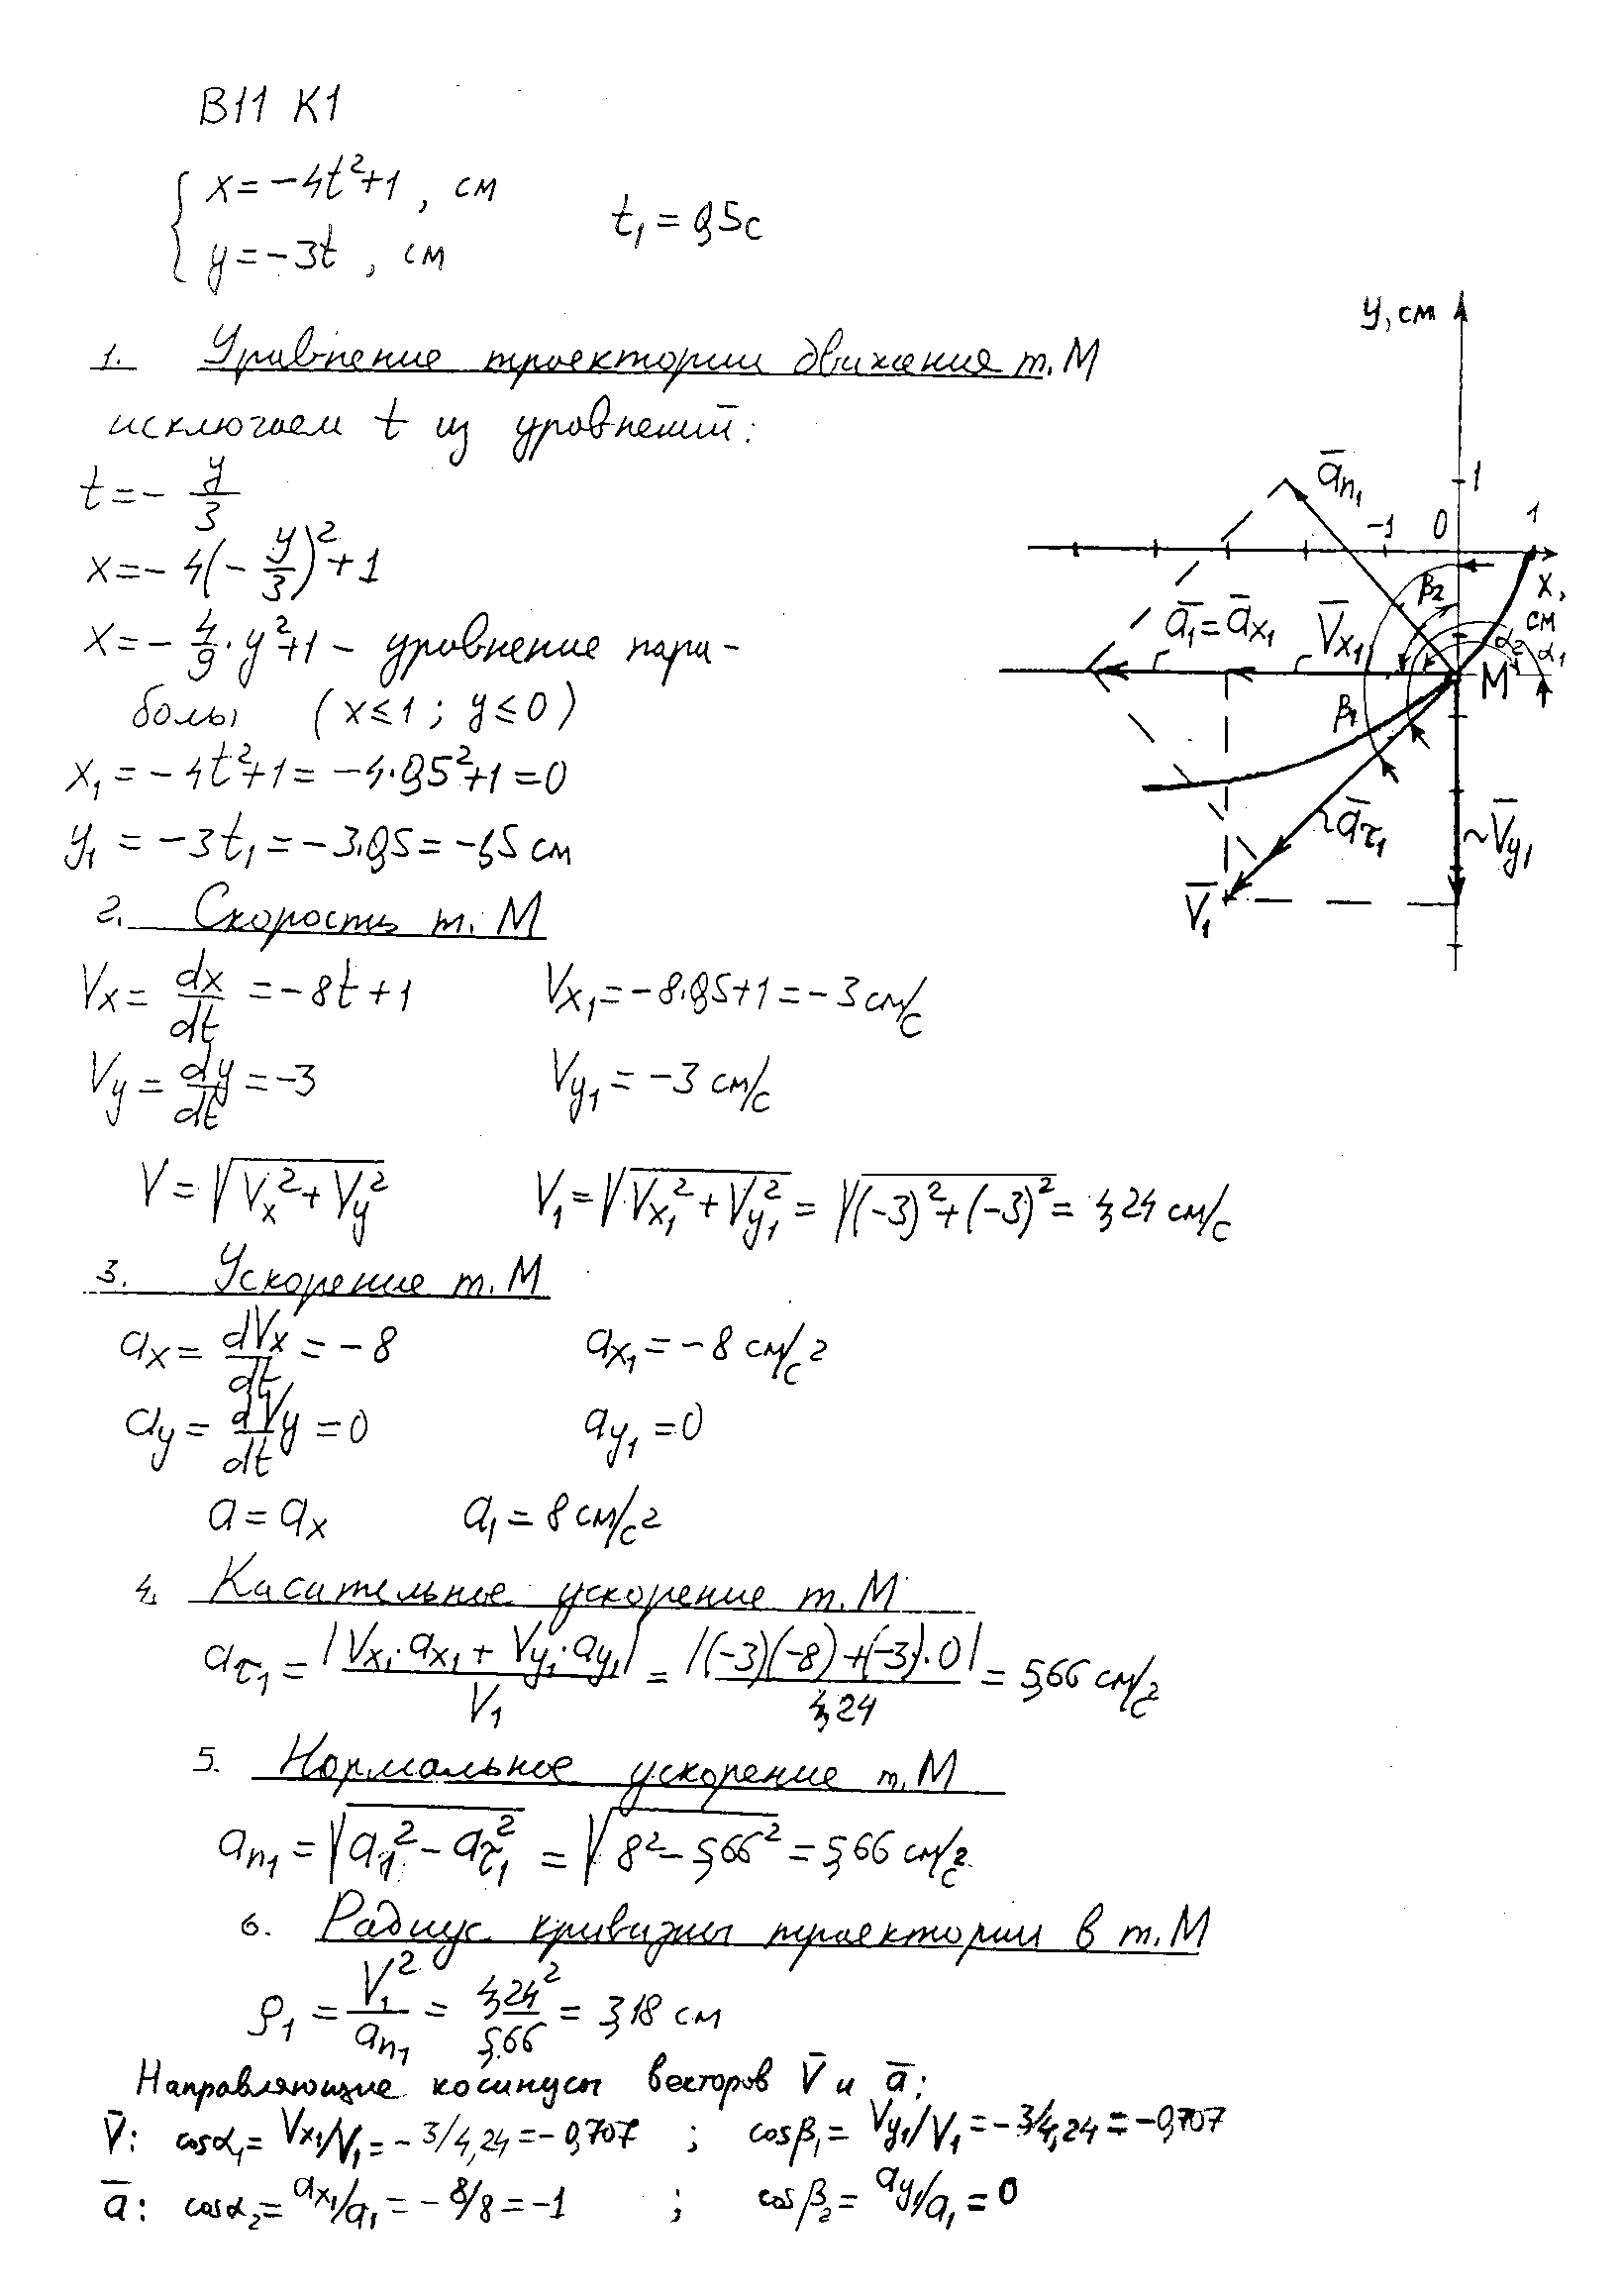 В11 К1
x = −4t²+1, см
y = −3t, см
t₁ = 0,5с
1. Уравнение траектории движения т. М
исключаем t из уравнений:
t = − y/3
x = − 4(− y/3)² + 1
x = − 4/9 · y² + 1 – уравнение пара-
болы (x ≤ 1 ; y ≤ 0)
x₁ = − 4t² + 1 = −4·0,5² + 1 = 0
y₁ = −3t₁ = −3·0,5 = −1,5 см
y, см
1
−1 0 1
x, см
a̅n₁
β₂
a̅₁ = a̅x₁
V̅x₁
α₂ α₁
М
β₁
a̅τ₁
V̅y₁
V̅₁
2. Скорость т. М
Vx = dx/dt = −8t + 1 Vx₁ = −8·0,5 + 1 = −3 см/с
Vy = dy/dt = −3 Vy₁ = −3 см/с
V = √(Vx² + Vy²) V₁ = √(Vx₁² + Vy₁²) = √((−3)² + (−3)²) = 4,24 см/с
3. Ускорение т. М
ax = dVx/dt = −8 ax₁ = −8 см/с²
ay = dVy/dt = 0 ay₁ = 0
a = ax a₁ = 8 см/с²
4. Касательное ускорение т. М
aτ₁ = |Vx₁·ax₁ + Vy₁·ay₁| / V₁ = |(−3)(−8) + (−3)·0| / 4,24 = 5,66 см/с²
5. Нормальное ускорение т. М
an₁ = √(a₁² − aτ₁²) = √(8² − 5,66²) = 5,66 см/с²
6. Радиус кривизны траектории в т. М
ρ₁ = V₁²/an₁ = 4,24²/5,66 = 3,18 см
Направляющие косинусы векторов V̅ и a̅:
V̅: cosα₁ = Vx₁/V₁ = −3/4,24 = −0,707 ; cosβ₁ = Vy₁/V₁ = −3/4,24 = −0,707
a̅: cosα₂ = ax₁/a₁ = −8/8 = −1 ; cosβ₂ = ay₁/a₁ = 0